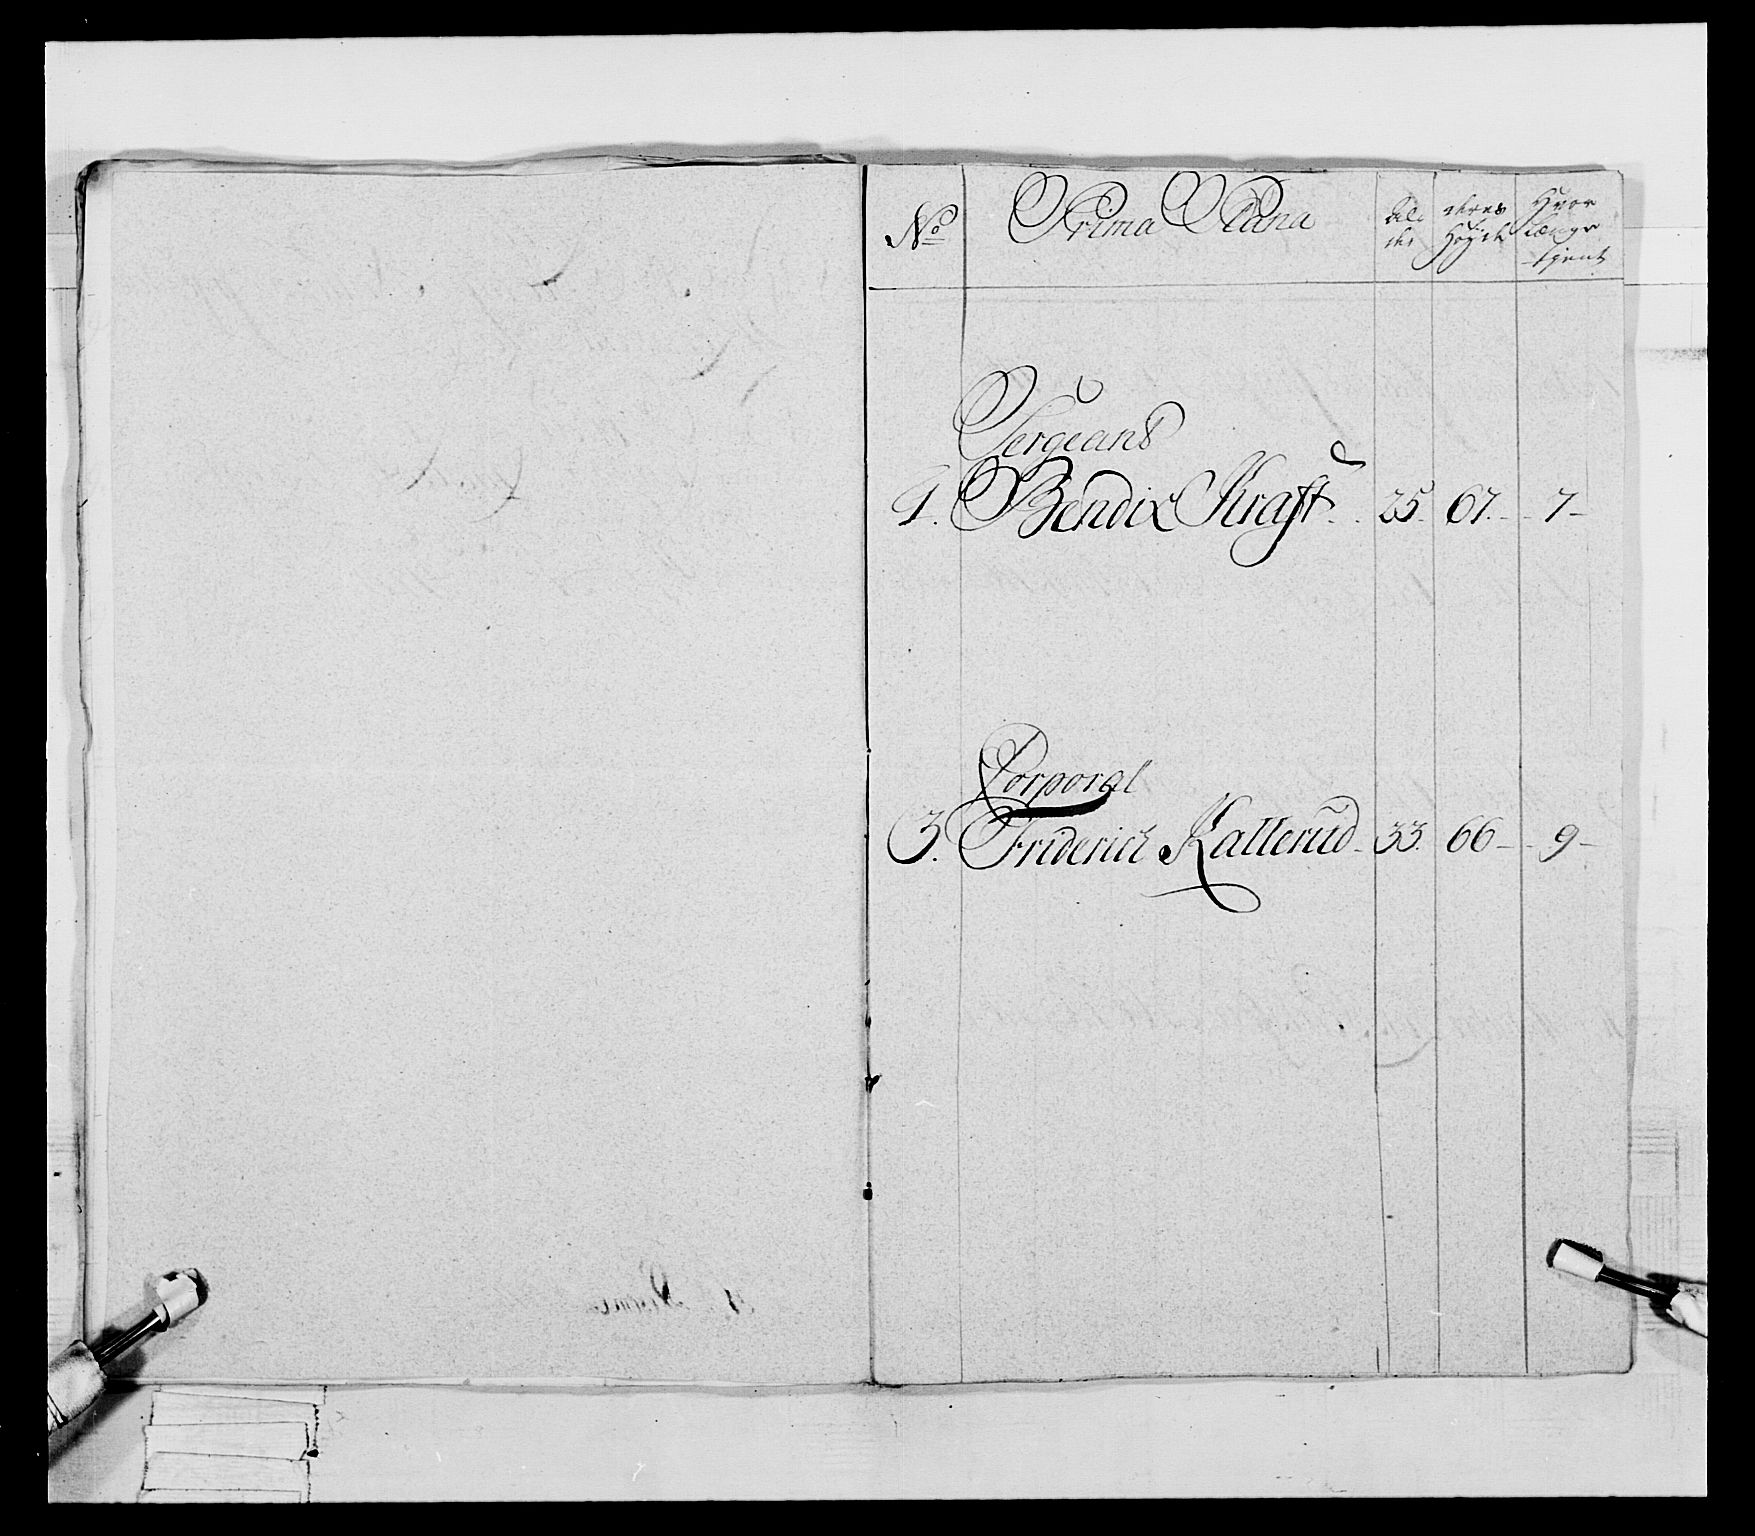 No Prima Plana Al der deres Höyde Hvor længe tjent
Sergeant
1. Bendix Kraft 25. 67. 7
Corporal
3. Friderich Kallerud 33. 66 9